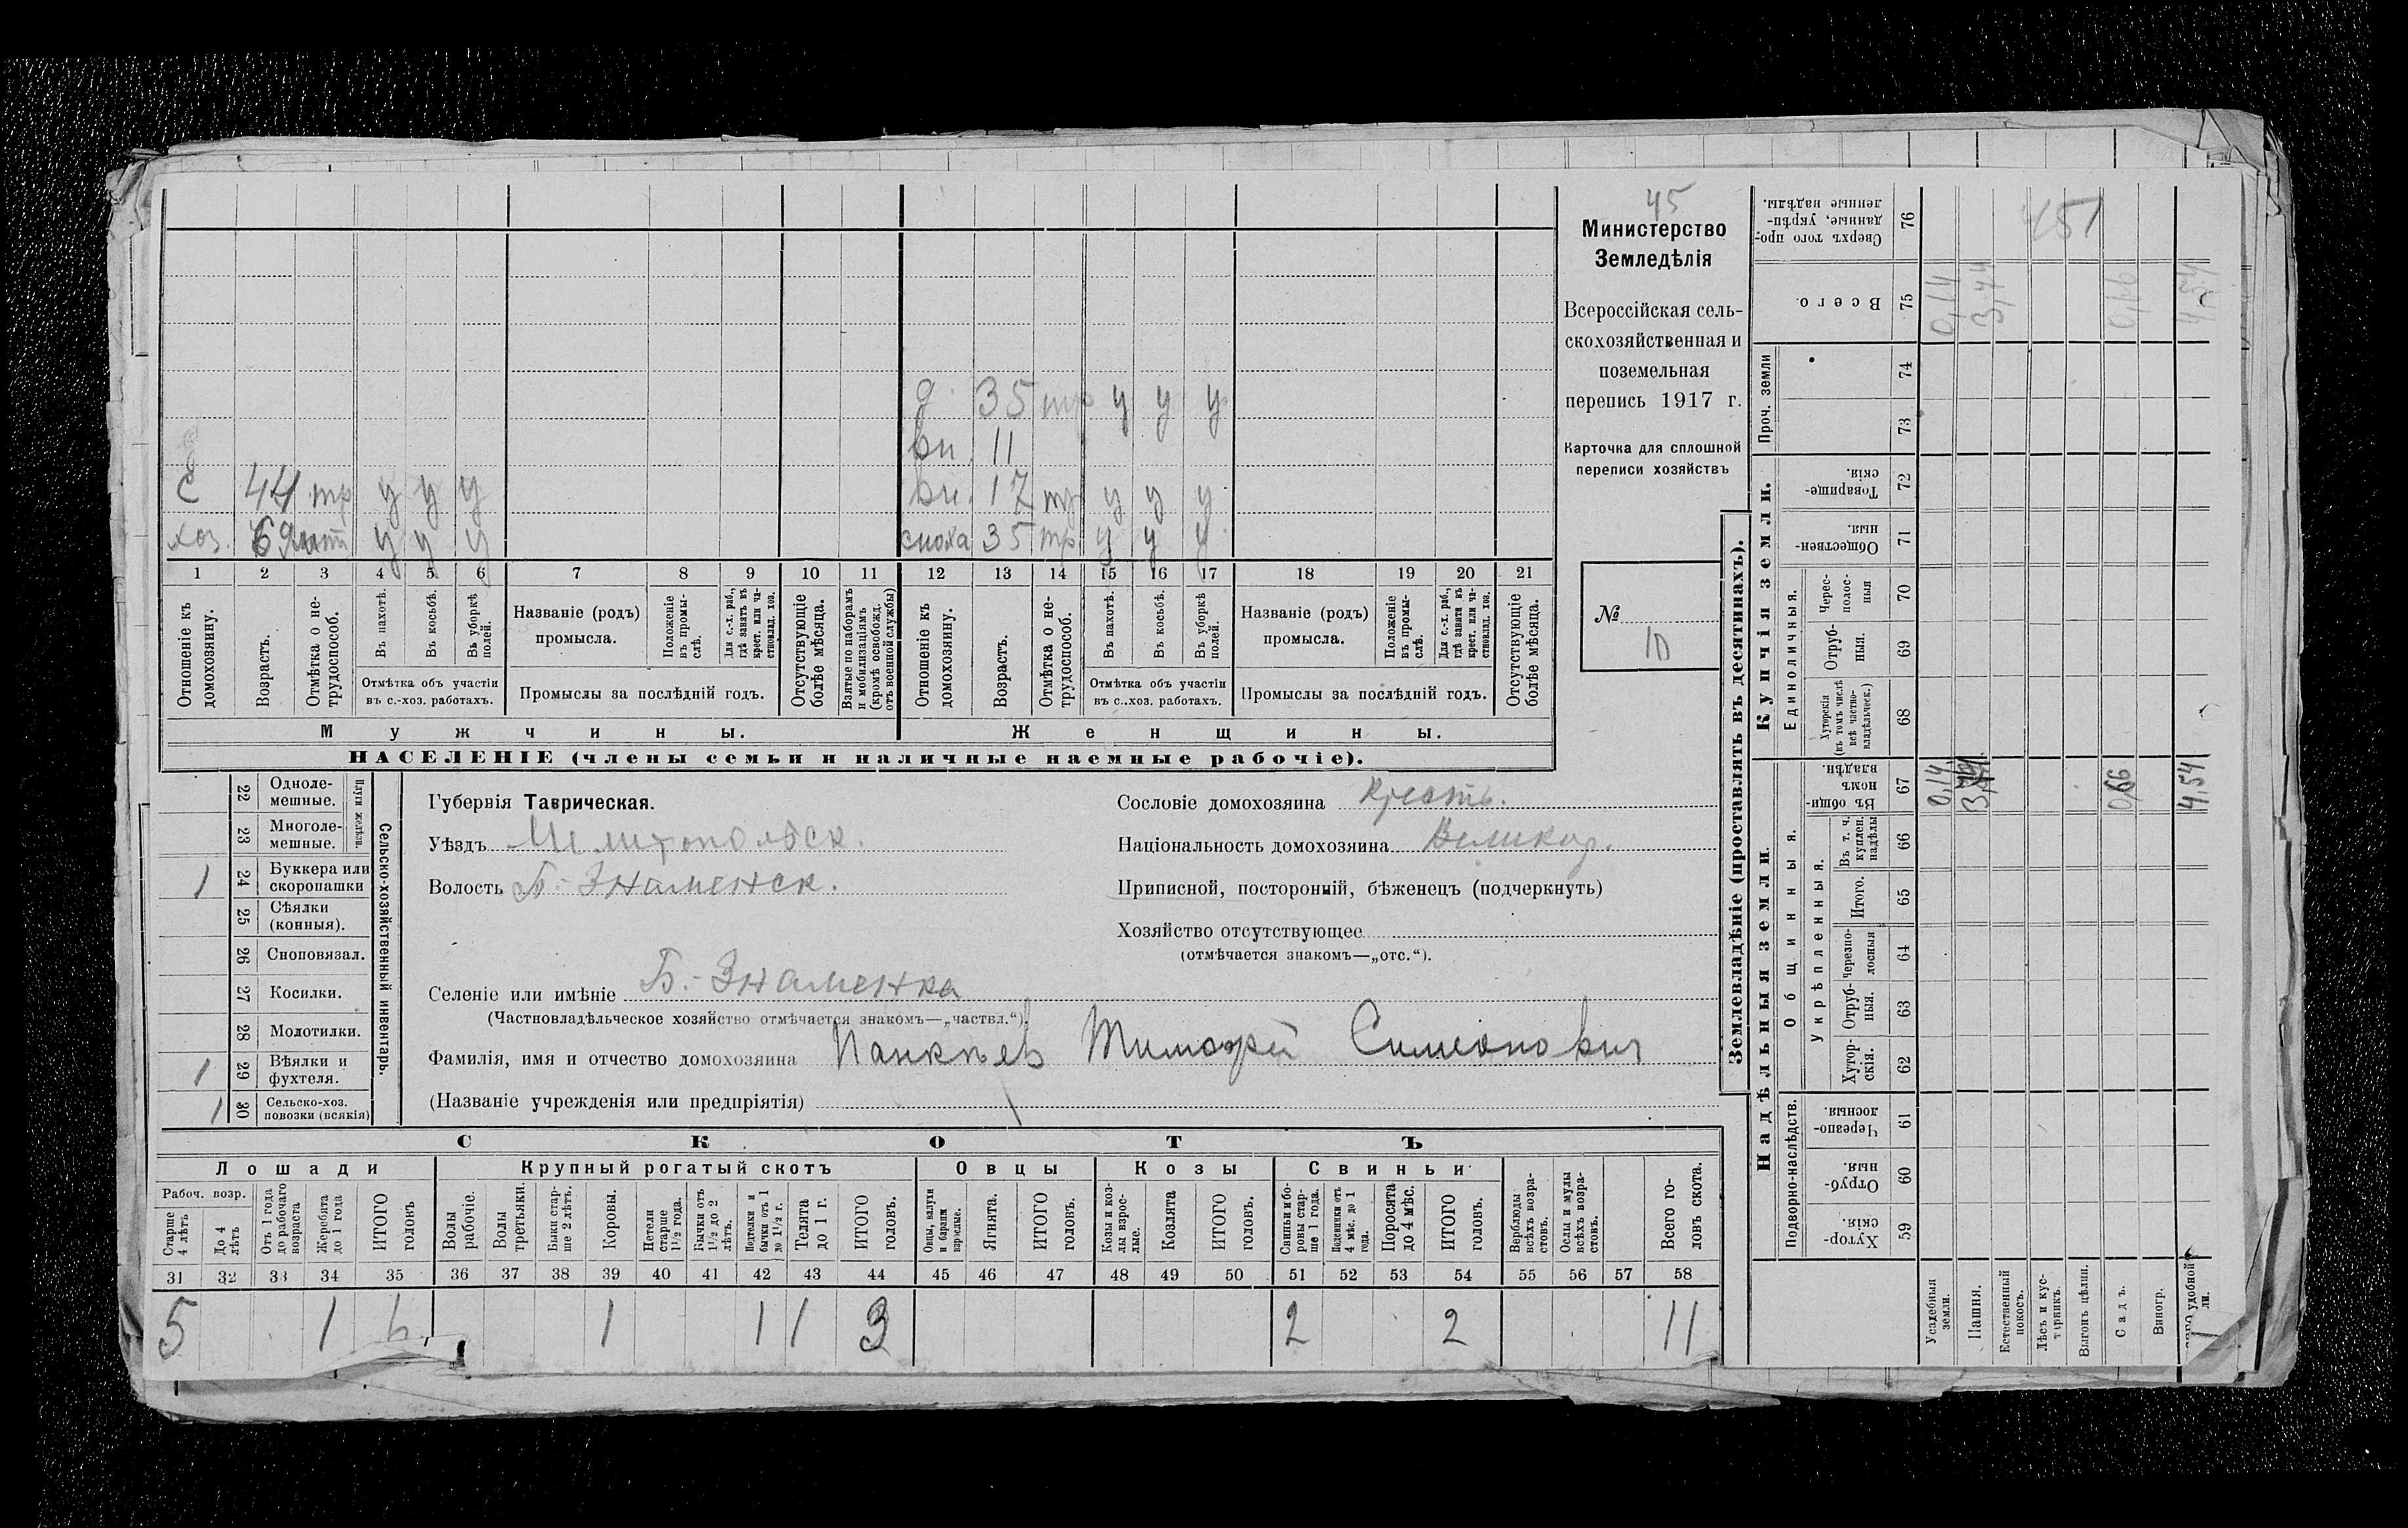 45
Министерство
Земледѣлія
Всероссійская сель-
скохозяйственная и
поземельная
перепись 1917 г.
Карточка для сплошной
переписи хозяйствъ
№
10
д. 35 тр у у у
вн. 11
С 44 тр у у у вн. 17 тр у у у
хоз. 69 у у у сноха 35 тр. у у у
1 2 3 4 5 6 7 8 9 10 11 12 13 14 15 16 17 18 19 20 21
Отношеніе къ домохозяину.
Возрастъ.
Отмѣтка о не-трудоспособ.
Въ пахотѣ.
Въ косьбѣ.
Въ уборкѣ полей.
Отмѣтка объ участіи
въ с.-хоз. работахъ.
Названіе (родъ)
промысла.
Положеніе въ промы-слѣ.
Для с.-х. раб., гдѣ занятъ въ крест. или ча-стновлад. хоз.
Промыслы за послѣдній годъ.
Отсутствующіе болѣе мѣсяца.
Взятые по наборамъ и мобилизаціямъ (кромѣ освобожд. отъ военной службы)
Отношеніе къ домохозяину.
Возрастъ.
Отмѣтка о не-трудоспособ.
Въ пахотѣ.
Въ косьбѣ.
Въ уборкѣ полей.
Отмѣтка объ участіи
въ с.-хоз. работахъ.
Названіе (родъ)
промысла.
Положеніе въ промы-слѣ.
Для с.-х. раб., гдѣ занята въ крест. или ча-стновлад. хоз.
Промыслы за послѣдній годъ.
Отсутствующіе болѣе мѣсяца.
Мужчины. Женщины.
НАСЕЛЕНІЕ (члены семьи и наличные наемные рабочіе).
22 Одноле-мешные.
23 Многоле-мешные.
Плуги желѣзн.
1 24 Буккера или скоропашки
25 Сѣялки (конныя).
26 Сноповязал.
27 Косилки.
28 Молотилки.
1 29 Вѣялки и фухтеля.
1 30 Сельско-хоз. повозки (всякія)
Сельско-хозяйственный инвентарь.
Губернія Таврическая.
Уѣздъ Мелитопольск.
Волость Б.-Знаменск.
Сословіе домохозяина Крестьн.
Національность домохозяина Великор.
Приписной, посторонній, бѣженецъ (подчеркнуть)
Хозяйство отсутствующее
(отмѣчается знакомъ—„отс.“).
Селеніе или имѣніе Б.-Знаменка
(Частновладѣльческое хозяйство отмѣчается знакомъ—„частвл.“).
Фамилія, имя и отчество домохозяина Панкѣев Тимофей Симеонович
(Названіе учрежденія или предпріятія)
СКОТЪ
Лошади Крупный рогатый скотъ Овцы Козы Свиньи
Рабоч. возр.
Старше 4 лѣтъ
До 4 лѣтъ
Отъ 1 года до рабочаго возраста
Жеребята до 1 года
ИТОГО головъ
Волы рабочіе.
Волы третьяки.
Быки стар-ше 2 лѣтъ.
Коровы.
Нетели старше 1½ года.
Бычки отъ 1½ до 2 лѣтъ.
Подтелки и бычки отъ 1 до 1½ г.
Телята до 1 г.
ИТОГО головъ.
Овцы, валухи и бараны взрослые.
Ягнята.
ИТОГО головъ.
Козы и коз-лы взрос-лые.
Козлята
ИТОГО головъ.
Свиньи и бо-ровы стар-ше 1 года.
Подсвинки отъ 4 мѣс. до 1 года.
Поросята до 4 мѣс.
ИТОГО головъ.
Верблюды всѣхъ возра-стовъ.
Ослы и мулы всѣхъ возра-стовъ.
Всего го-ловъ скота.
31 32 33 34 35 36 37 38 39 40 41 42 43 44 45 46 47 48 49 50 51 52 53 54 55 56 57 58
5 1 6 1 1 1 3 2 2 11
Землевладѣніе (проставлять въ десятинахъ).
Надѣльныя земли. Купчія земли. Проч. земли
Подворно-наслѣдств. Общинныя. Укрѣпленныя. Единоличныя.
Сверхъ того про-данные, укрѣп-ленные надѣлы. 76
Всего. 75
74
73
Товарище-скія. 72
Обществен-ныя. 71
Черес-полос-ныя 70
Отруб-ныя. 69
Хуторскія (въ томъ числѣ всѣ частно-владѣльческ.) 68
Въ общи-номъ владѣн. 67
Въ т. ч. куплен. надѣлы 66
Итого. 65
Черезпо-лосныя 64
Отруб-ныя. 63
Хутор-скія. 62
Черезпо-лосныя 61
Отруб-ныя. 60
Хутор-скія. 59
Усадебныя земли.
Пашня.
Естественный покосъ.
Лѣсъ и кус-тарникъ.
Выгонъ цѣлин.
Садъ.
Виногр.
удобной
451
0,14 3,74 0,66 4,54
0,14 0,66 4,54